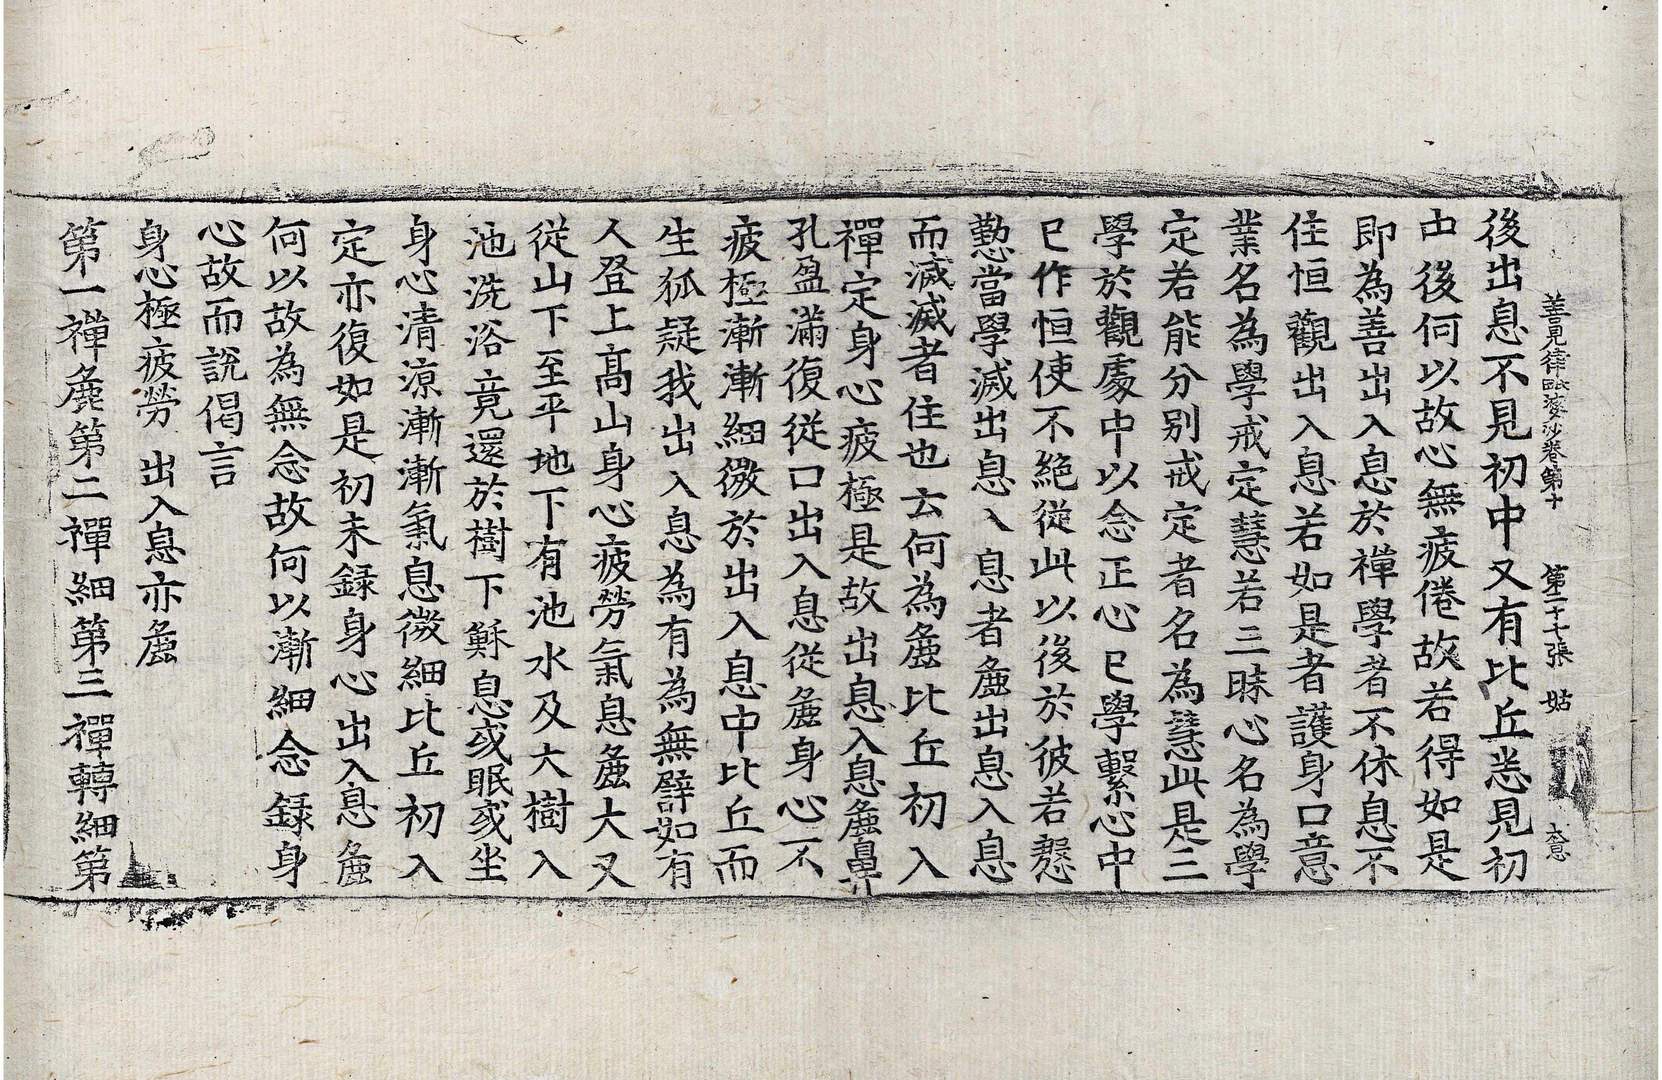 善見律毗婆沙卷第十 第二十七張 姑
後出息不見初中又有比丘悉見初
中後何以故心無疲倦故若得如是
即為善出入息於禪學者不休息不
住恒觀出入息若如是者護身口意
業名為學戒定慧若三昧心名為學
定若能分别戒定者名為慧此是三
學於觀處中以念正心已學繫心中
已作恒使不絕從此以後於彼若懃
懃當學滅出息入息者麁出息入息
而滅滅者住也云何為麁比丘初入
禪定身心疲極是故出息入息麁鼻
孔盈滿復從口出入息從麁身心不
疲極漸漸細微於出入息中比丘而
生狐疑我出入息為有為無譬如有
人登上高山身心疲勞氣息麁大又
從山下至平地下有池水及大樹入
池洗浴竟還於樹下穌息或眠或坐
身心清涼漸漸氣息微細比丘初入
定亦復如是初未録身心出入息麁
何以故為無念故何以漸細念録身
心故而說偈言
身心極疲勞 出入息亦麁
第一禪麁第二禪細第三禪轉細第